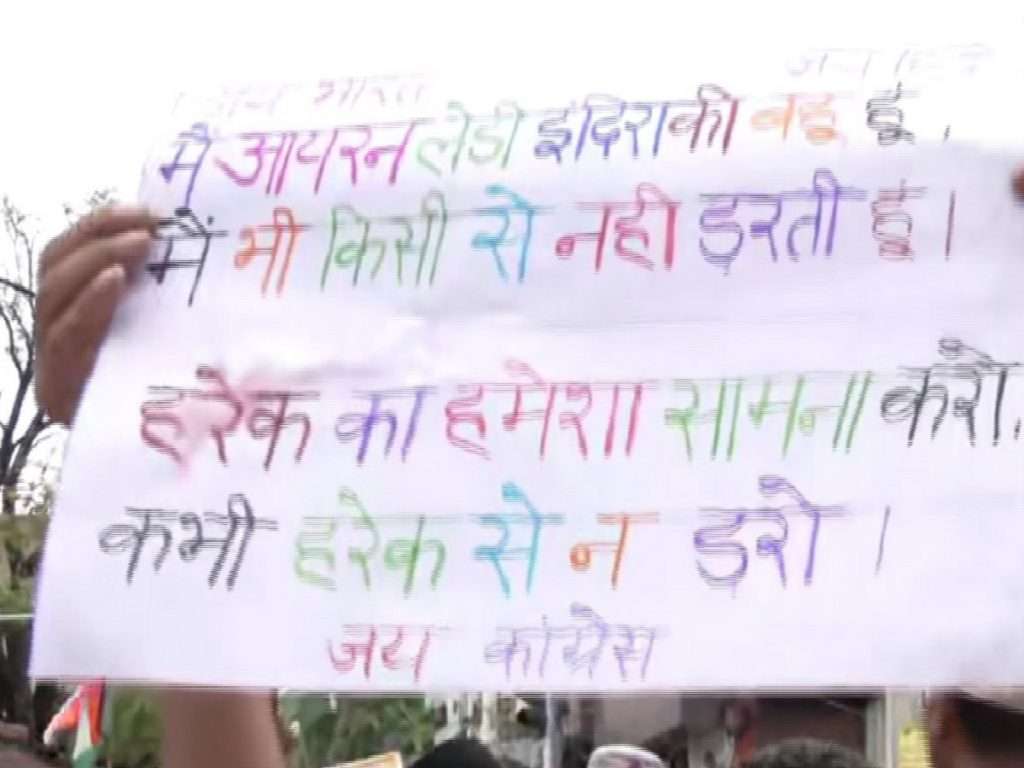 जय भारत जय हिन्द
मैं आयरन लेडी इंदिरा की बहू हूं,
मैं भी किसी से नही ड़रती हूं।
हरेक का हमेशा सामना करो,
कभी हरेक से न ड़रो।
जय कांग्रेस